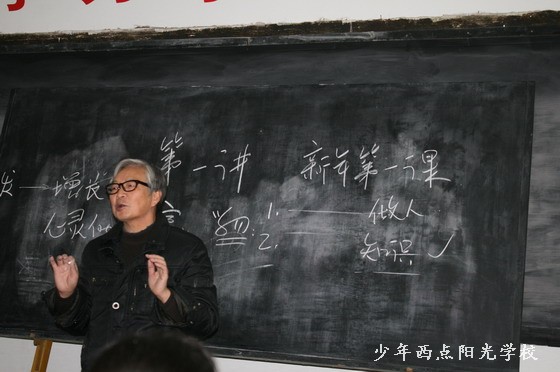 第一讲
新年第一课
发——增长
心灵
言
1.——做人
2. 知识✓
少年西点阳光学校